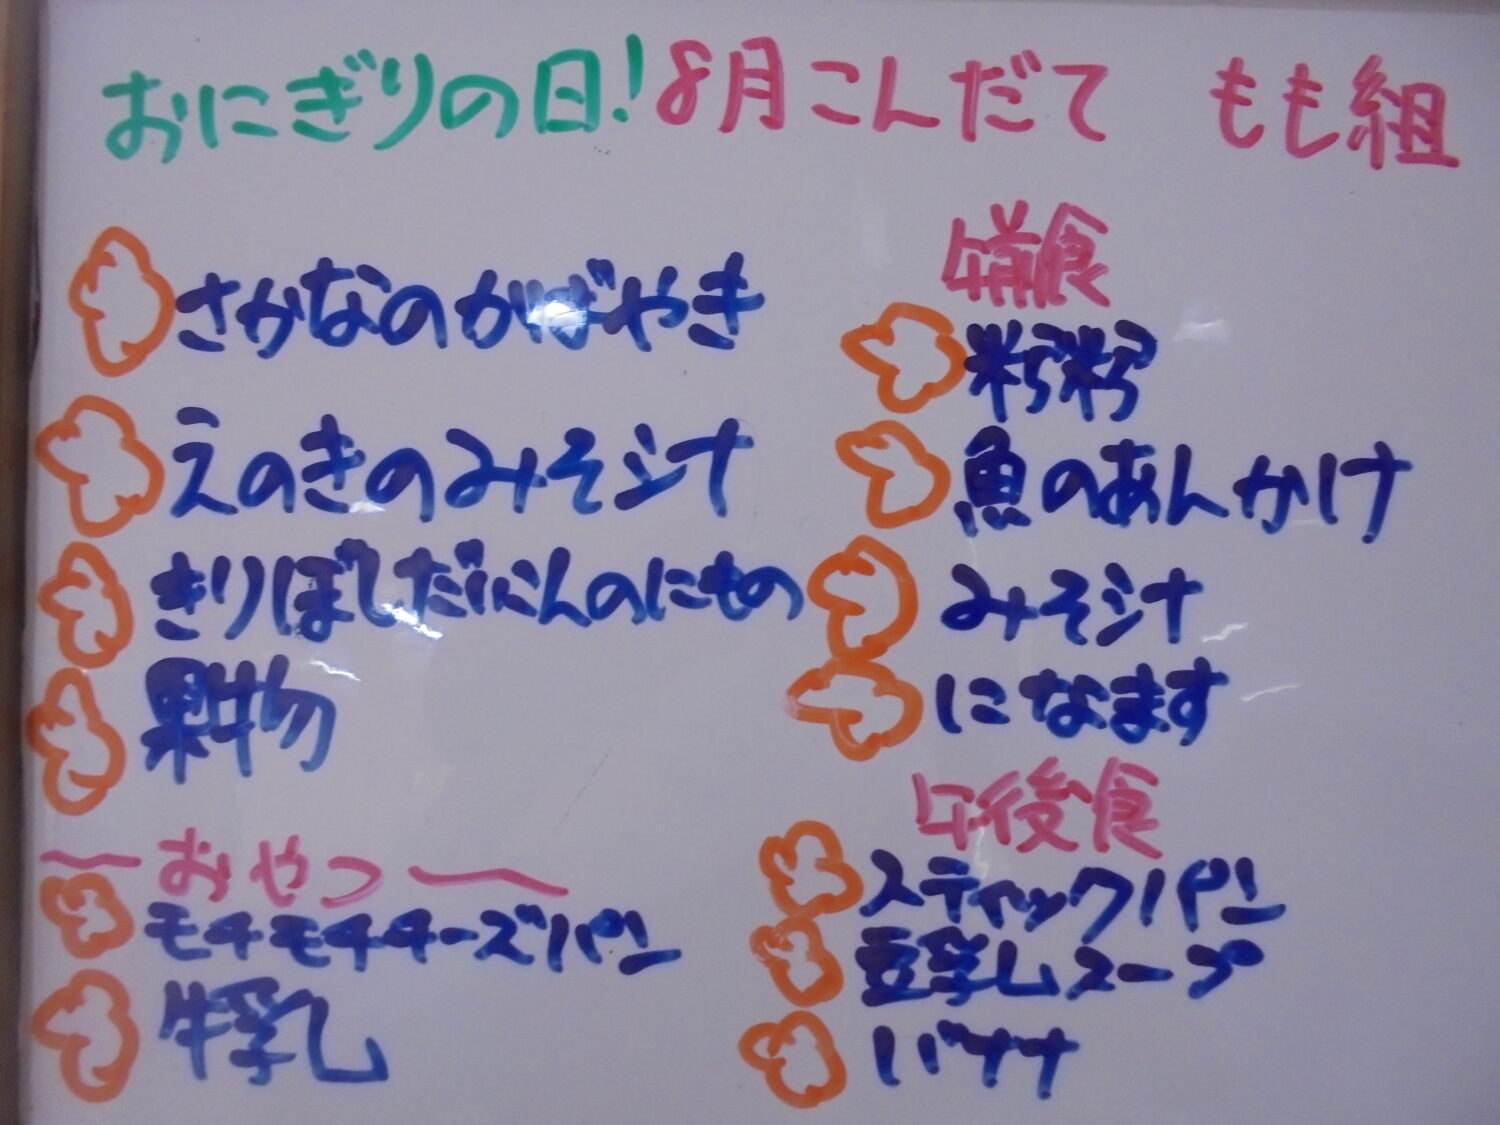 おにぎりの日！8月こんだて　もも組
さかなのかばやき
えのきのみそ汁
きりぼしだいこんのにもの
果物
おやつ
モチモチチーズパン
牛乳
午前食
魚のあんかけ
みそ汁
になます
午後食
スティックパン
豆乳スープ
バナナ